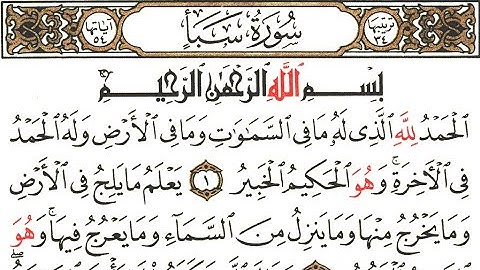 ترتيبها ٣٤ سُورَةُ سَبَأ آياتها ٥٤
بِسْمِ ٱللَّهِ ٱلرَّحْمَٰنِ ٱلرَّحِيمِ
ٱلْحَمْدُ لِلَّهِ ٱلَّذِى لَهُۥ مَا فِى ٱلسَّمَٰوَٰتِ وَمَا فِى ٱلْأَرْضِ وَلَهُ ٱلْحَمْدُ
فِى ٱلْأَخِرَةِ ۚ وَهُوَ ٱلْحَكِيمُ ٱلْخَبِيرُ ١ يَعْلَمُ مَا يَلِجُ فِى ٱلْأَرْضِ
وَمَا يَخْرُجُ مِنْهَا وَمَا يَنزِلُ مِنَ ٱلسَّمَآءِ وَمَا يَعْرُجُ فِيهَا ۚ وَهُوَ